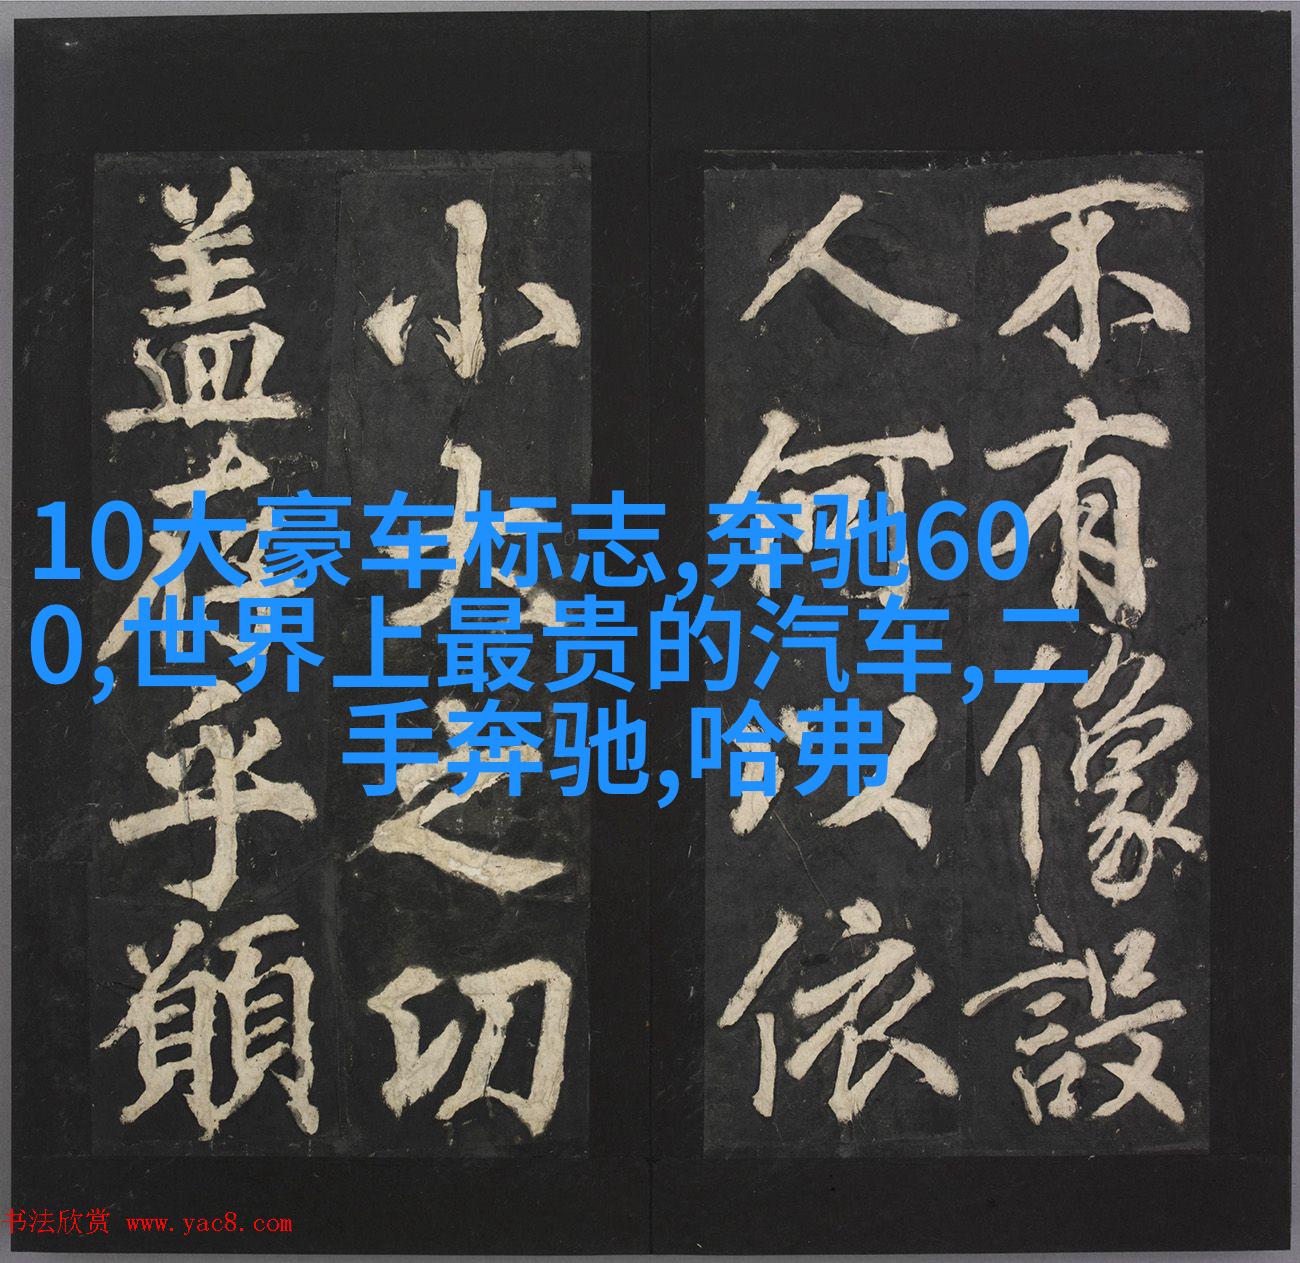 不有像設
人何以依
小大之切
蓋存乎願
10大豪车标志,奔驰60
0,世界上最贵的汽车,二
手奔驰,哈弗
书法欣赏 www.yac8.com